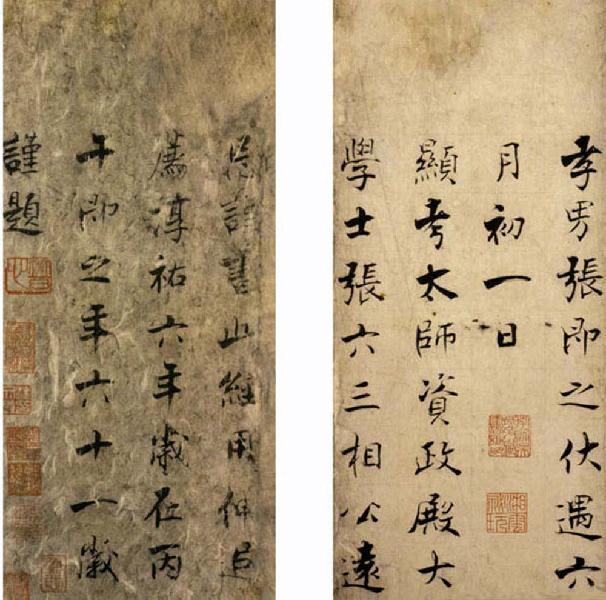 孝男張即之伏遇六
月初一日
顯考太師資政殿大
學士張六三相公遠
忌謹書此經用伸追
薦淳祐六年歲在丙
午即之年六十一歲
謹題